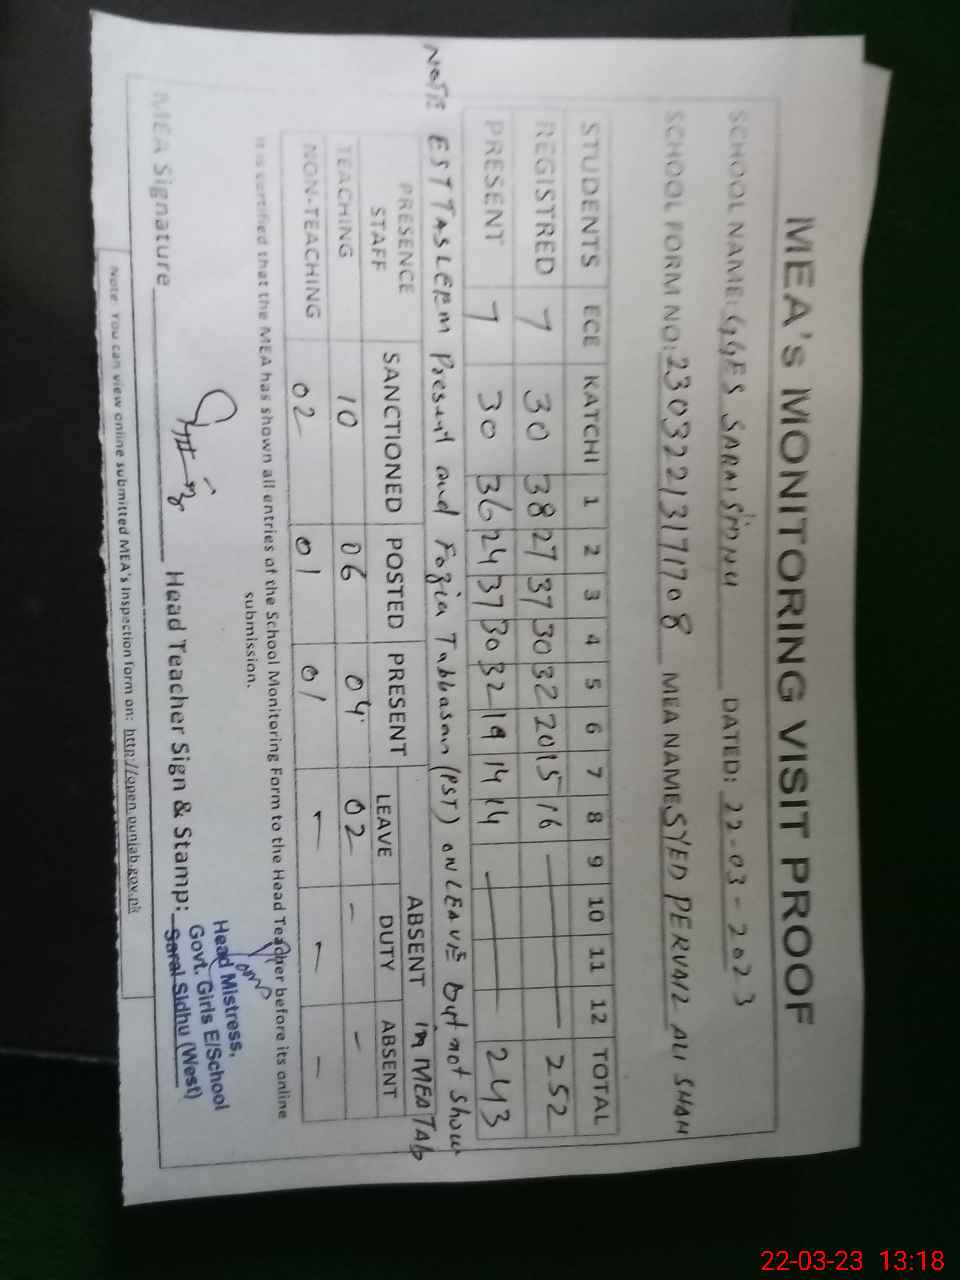 MEA's MONITORING VISIT PROOF
SCHOOL NAME: GGES SARAI SIDHU DATED: 22-03-2023
SCHOOL FORM NO: 23032213171708 MEA NAME SYED PERVAIZ ALI SHAH
STUDENTS ECE KATCHI 1 2 3 4 5 6 7 8 9 10 11 12 TOTAL
REGISTRED 7 30 38 27 37 30 32 20 15 16 — 252
PRESENT 7 30 36 24 37 30 32 19 14 14 — 243
NOTE: EST TASLEEM Present and Fozia Tabbasam (PST) ON LEAVE but not show in MEA TAb
PRESENCE STAFF SANCTIONED POSTED PRESENT ABSENT
LEAVE DUTY ABSENT
TEACHING 10 06 04 02 - -
NON-TEACHING 02 01 01 - - -
It is certified that the MEA has shown all entries of the School Monitoring Form to the Head Teacher before its online
submission.
MEA Signature Head Teacher Sign & Stamp:
Head Mistress,
Govt. Girls E/School
Sarai Sidhu (West)
Note: You can view online submitted MEA's inspection form on: http://open.punjab.gov.pk
22-03-23 13:18